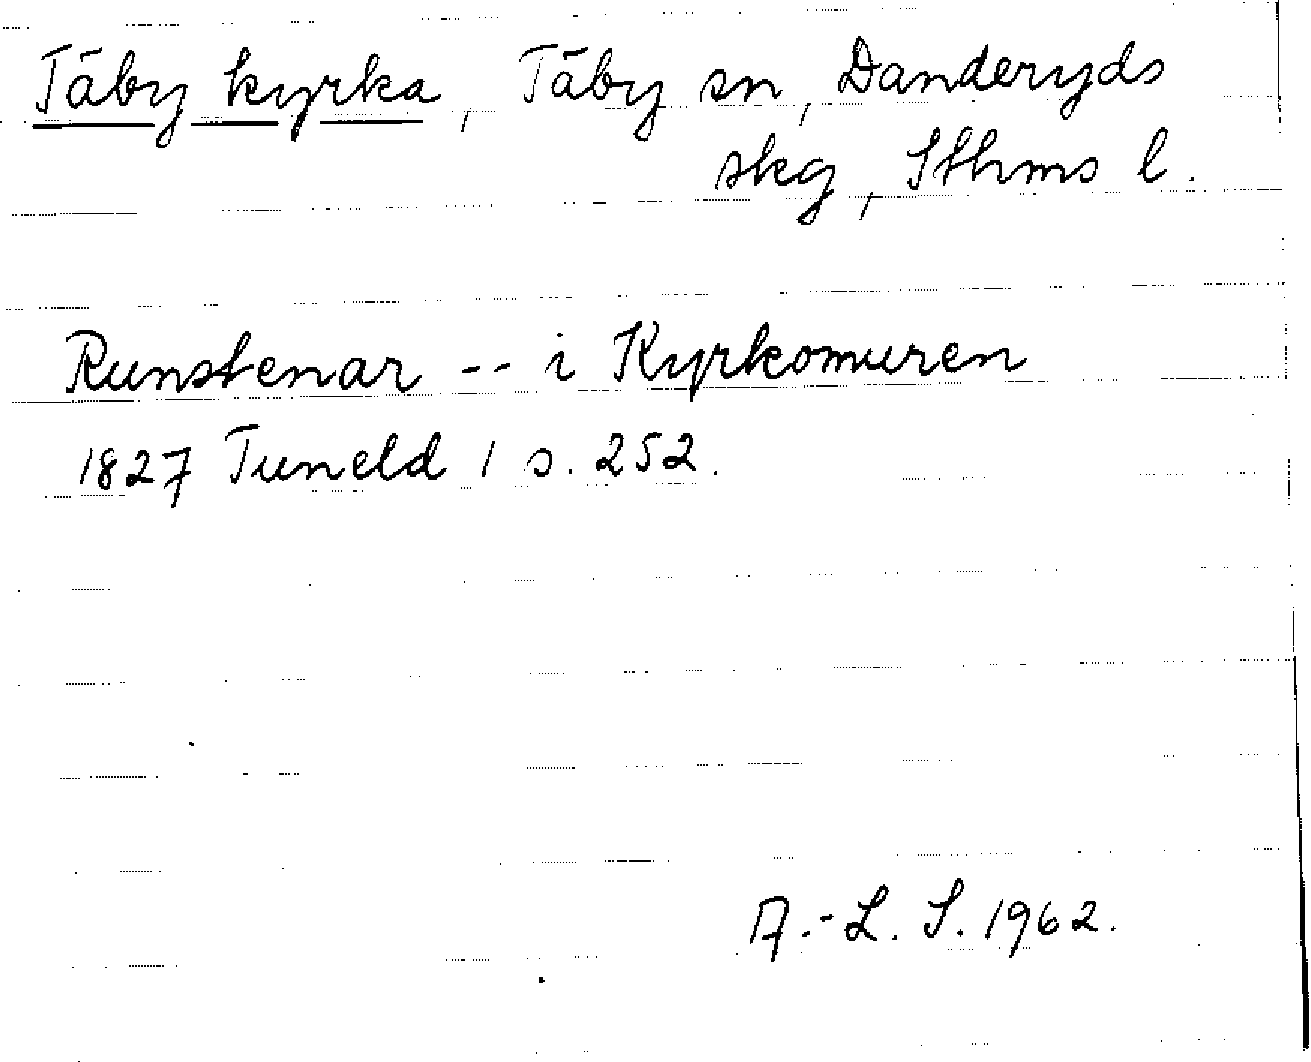 Täby kyrka, Täby sn, Danderyds
skg, Sthms l.
Runstenar -- i Kyrkomuren
1827 Tuneld 1 s. 252.
A.-L. S. 1962.